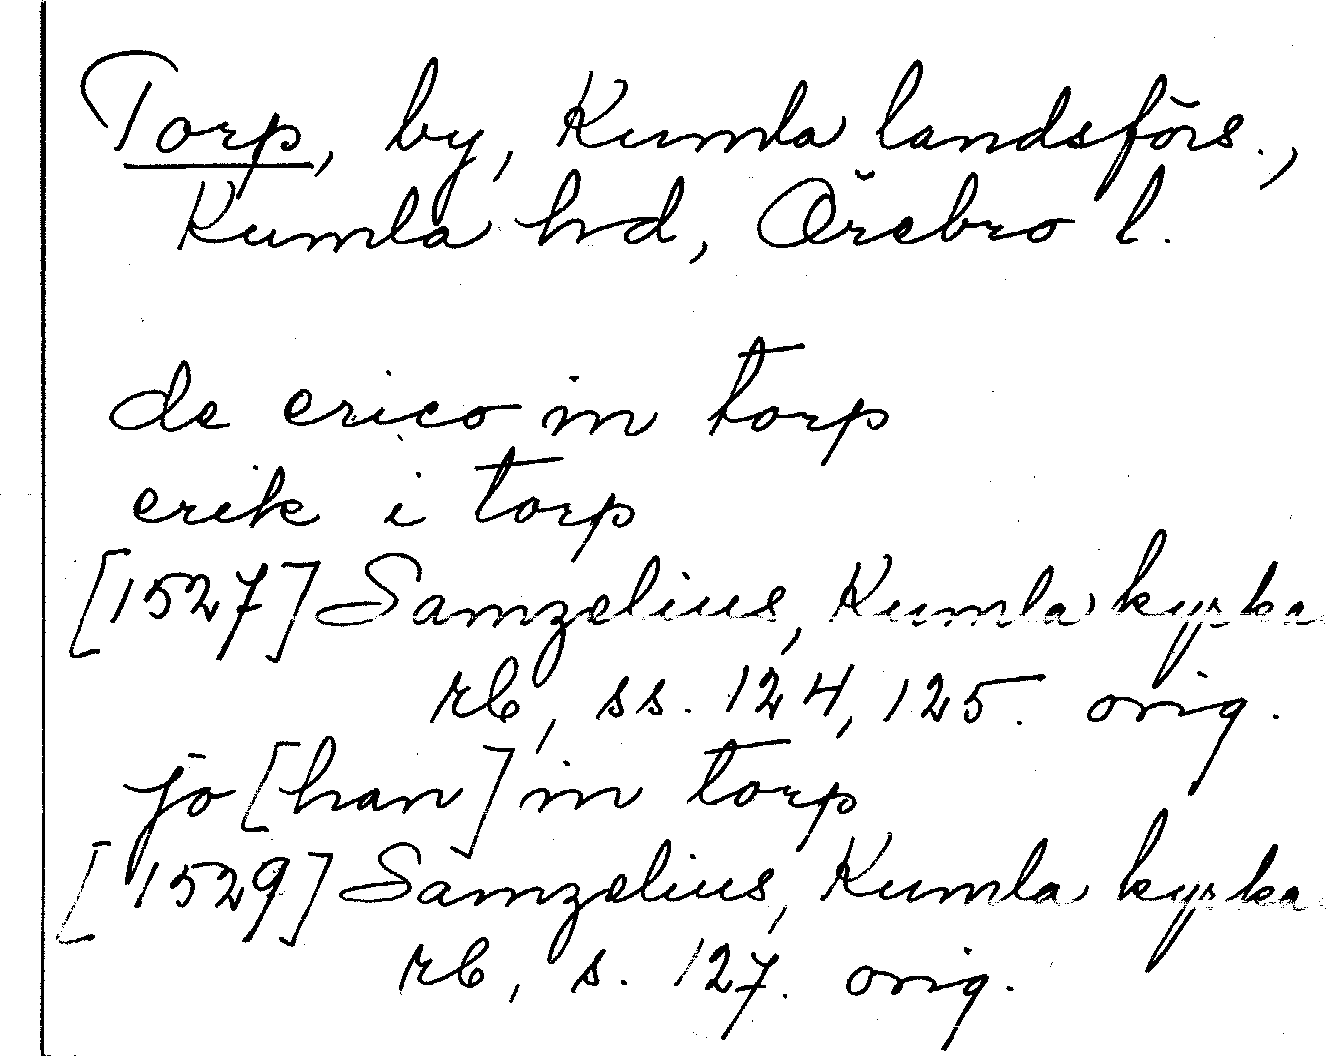 Torp, by, Kumla landsförs.,
Kumla hd, Örebro l.
de erico in torp
erik i torp
[1527] Samzelius, Kumla kyrka
rb, ss. 124, 125. orig.
jo [han] in torp
[1529] Samzelius, Kumla kyrka
rb, s. 127. orig.